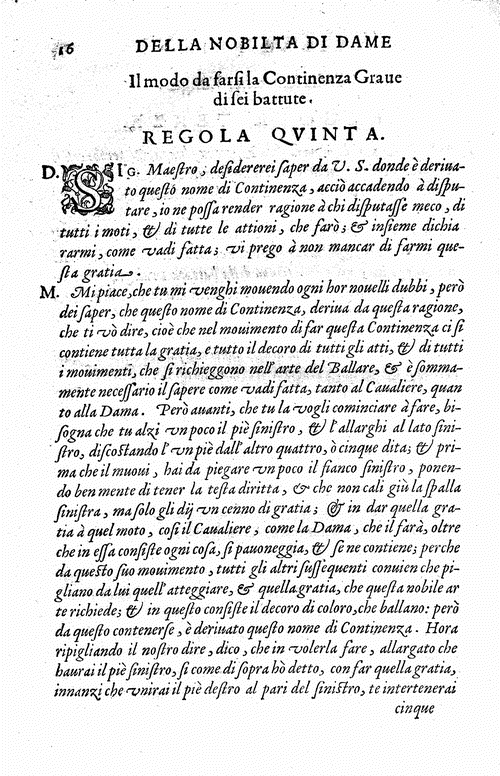 16 DELLA NOBILTA DI DAME
Il modo da farſi la Continenza Graue
di ſei battute.
REGOLA QVINTA.
D. SIG. Maeſtro, deſidererei ſaper da V. S. donde è deriua-
to queſto nome di Continenza, acciò accadendo à diſpu-
tare, io ne poſſa render ragione à chi diſputaſſe meco, di
tutti i moti, & di tutte le attioni, che farò; & inſieme dichia
rarmi, come vadi fatta; vi prego à non mancar di farmi que-
ſta gratia.
M. Mi piace, che tu mi venghi mouendo ogni hor nouelli dubbi, però
dei ſaper, che queſto nome di Continenza, deriua da queſta ragione,
che ti vò dire, cioè che nel mouimento di far queſta Continenza ci ſi
contiene tutta la gratia, e tutto il decoro di tutti gli atti, & di tutti
i mouimenti, che ſi richieggono nell'arte del Ballare, & è ſomma-
mente neceſſario il ſapere come vadi fatta, tanto al Caualiere, quan
to alla Dama. Però auanti, che tu la vogli cominciare à fare, bi-
ſogna che tu alzi vn poco il piè ſiniſtro, & l'allarghi al lato ſini-
ſtro, diſcoſtando l'vn piè dall'altro quattro, ò cinque dita; & pri-
ma che il muoui, hai da piegare vn poco il fianco ſiniſtro, ponen-
do ben mente di tener la teſta diritta, & che non cali giù la ſpalla
ſiniſtra, ma ſolo gli dij vn cenno di gratia; & in dar quella gra-
tia à quel moto, coſi il Caualiere, come la Dama, che il farà, oltre
che in eſſa conſiſte ogni coſa, ſi pauoneggia, & ſe ne contiene; perche
da queſto ſuo mouimento, tutti gli altri ſuſſequenti conuien che pi-
gliano da lui quell'atteggiare, & quella gratia, che queſta nobile ar
te richiede; & in queſto conſiſte il decoro di coloro, che ballano: però
da queſto contenerſe, è deriuato queſto nome di Continenza. Hora
ripigliando il noſtro dire, dico, che in volerla fare, allargato che
haurai il piè ſiniſtro, ſi come di ſopra hò detto, con far quella gratia,
innanzi che vnirai il piè deſtro al pari del ſiniſtro, te intertenerai
cinque